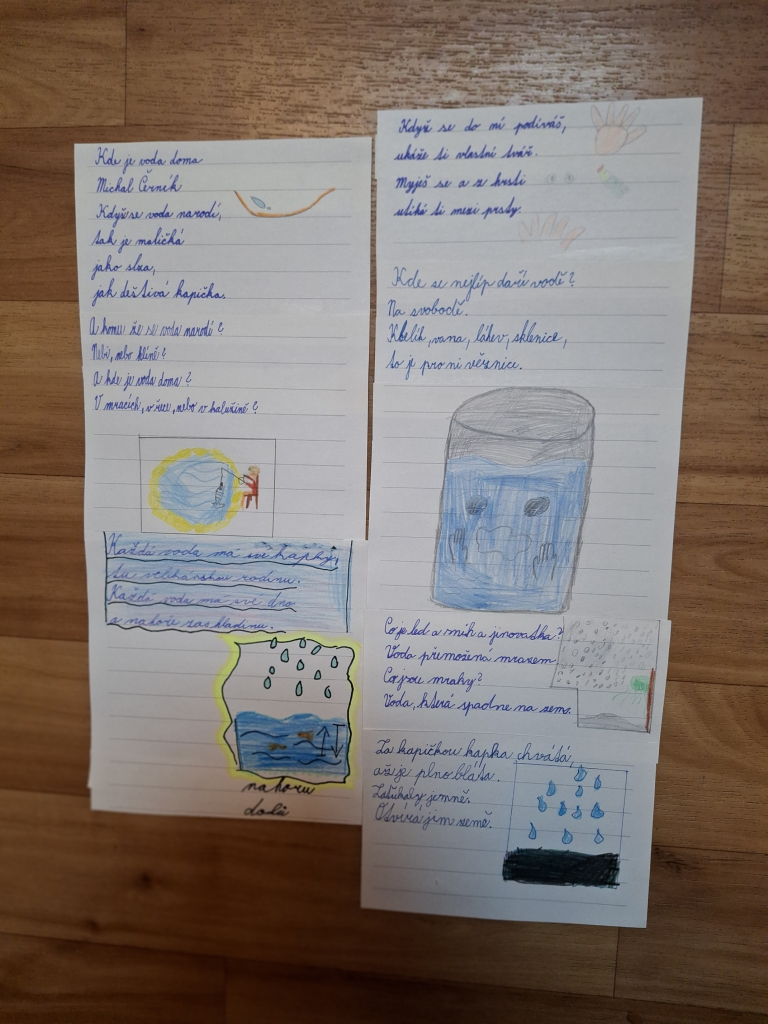 Kde je voda doma
Michal Černík
Když se voda narodí,
tak je maličká
jako slza,
jak deštivá kapička.
A komu že se voda narodí?
Nebi, nebo hlíně?
A kde je voda doma?
V mracích, v řece, nebo v kalužině?
Každá voda má své kapky,
tu velikánskou rodinu.
Každá voda má své dno
a nahoře zas hladinu.
nahoru
dolů
Když se do ní podíváš,
ukáže ti vlastní tvář.
Myješ se a z hrsti
utíká ti mezi prsty.
Kde se nejlíp daří vodě?
Na svobodě.
Kbelík, vana, láhev, sklenice,
to je pro ni věznice.
Co je led a sníh a jinovatka?
Voda přemožená mrazem.
Co jsou mraky?
Voda, která spadne na zem.
Za kapičkou kapka chvátá,
až je plno bláta.
Zaťukaly jemně.
Otvírá jim země.